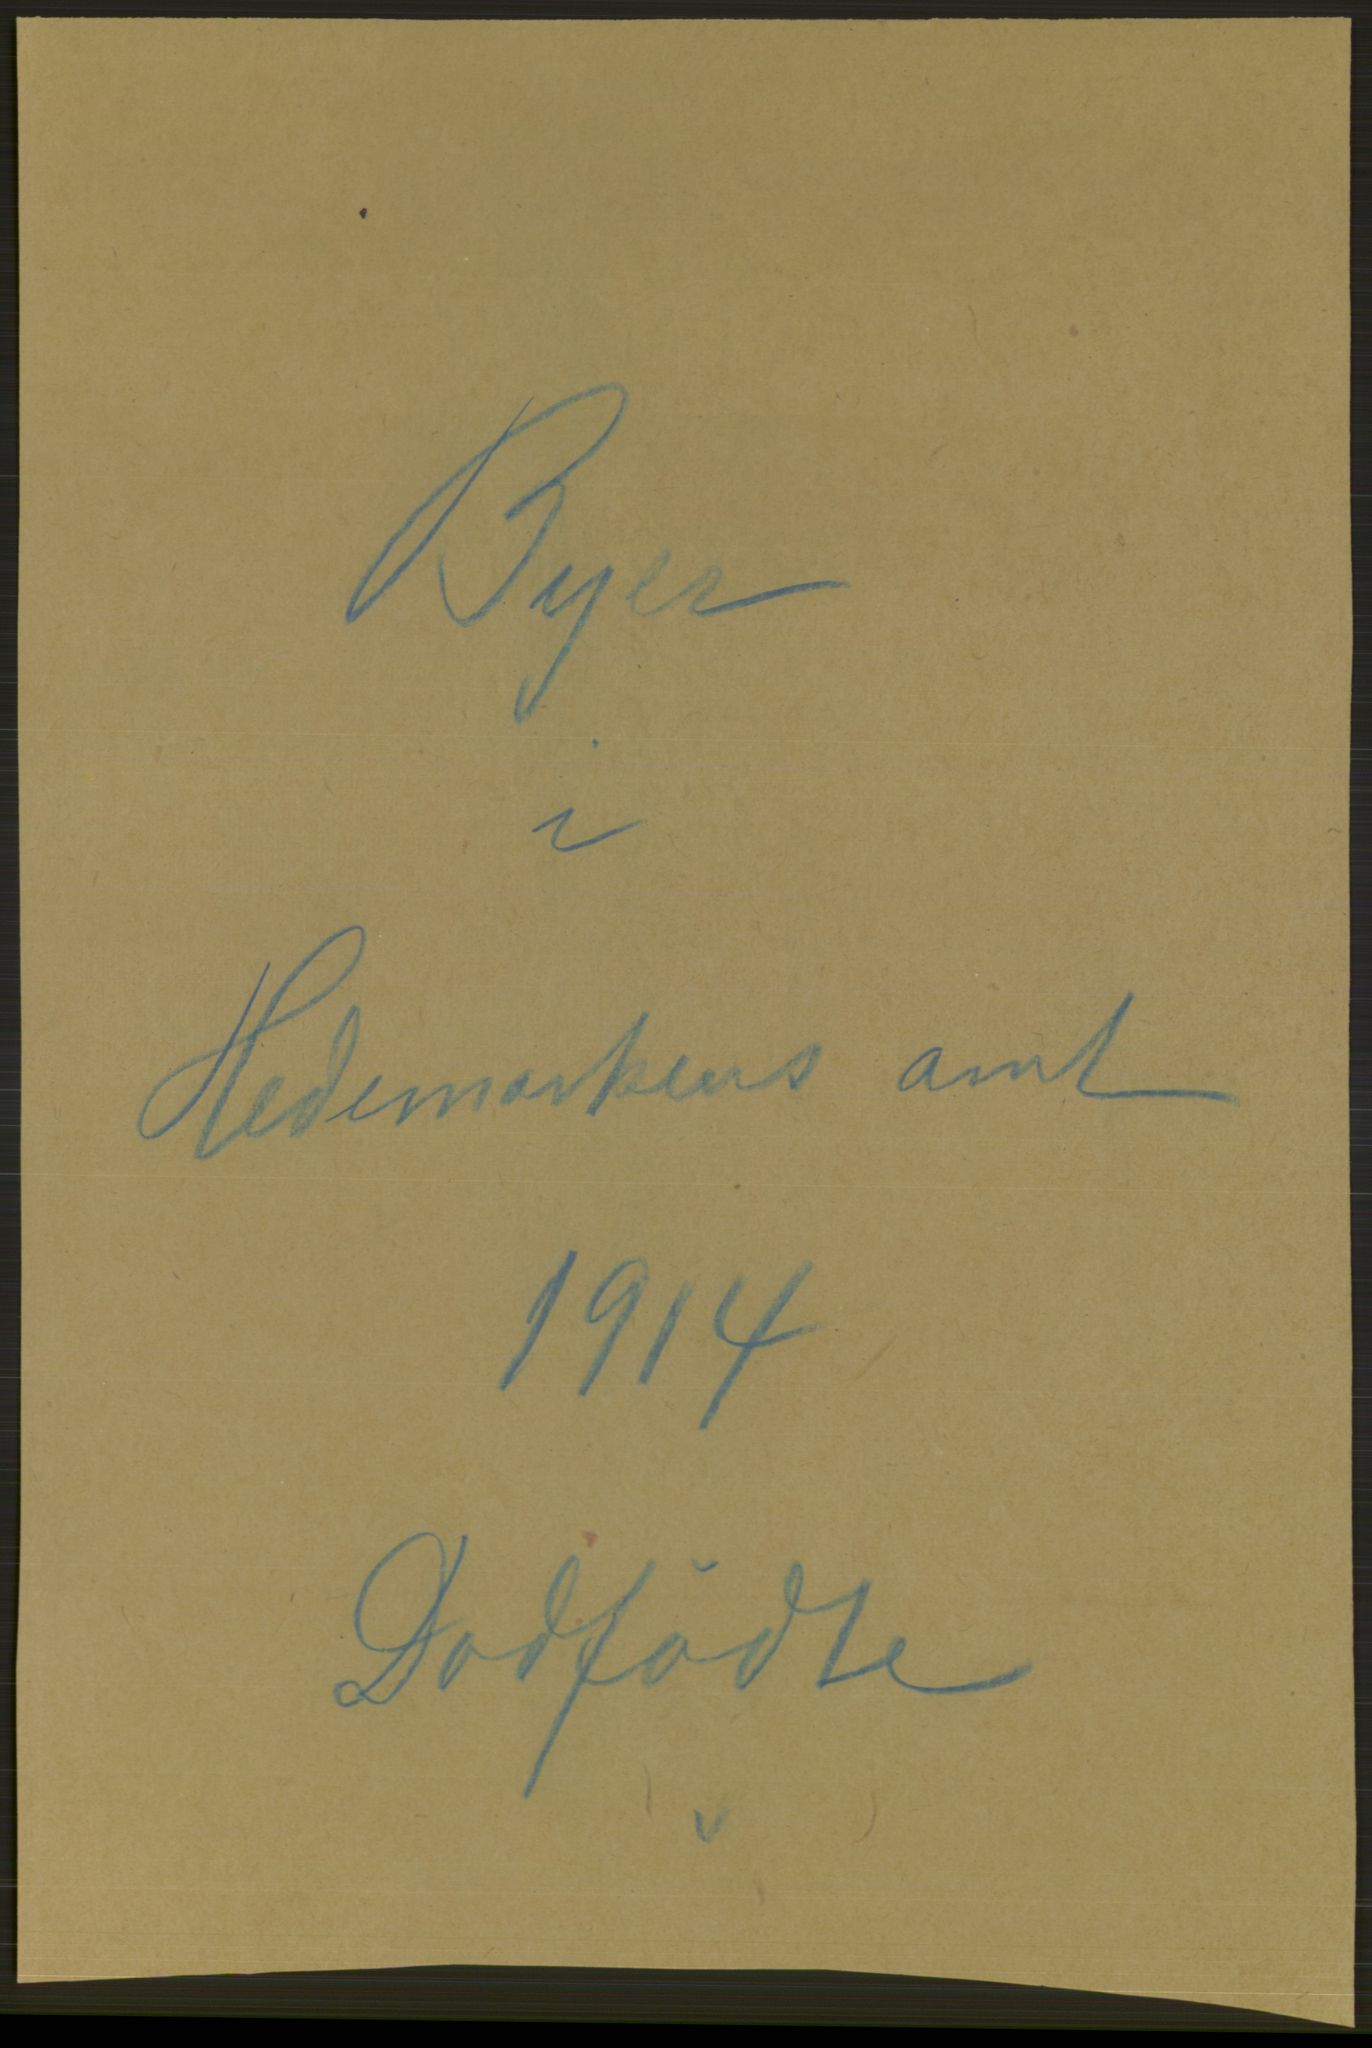 Byer
i
Hedemarkens amt
1914
Dødfødte